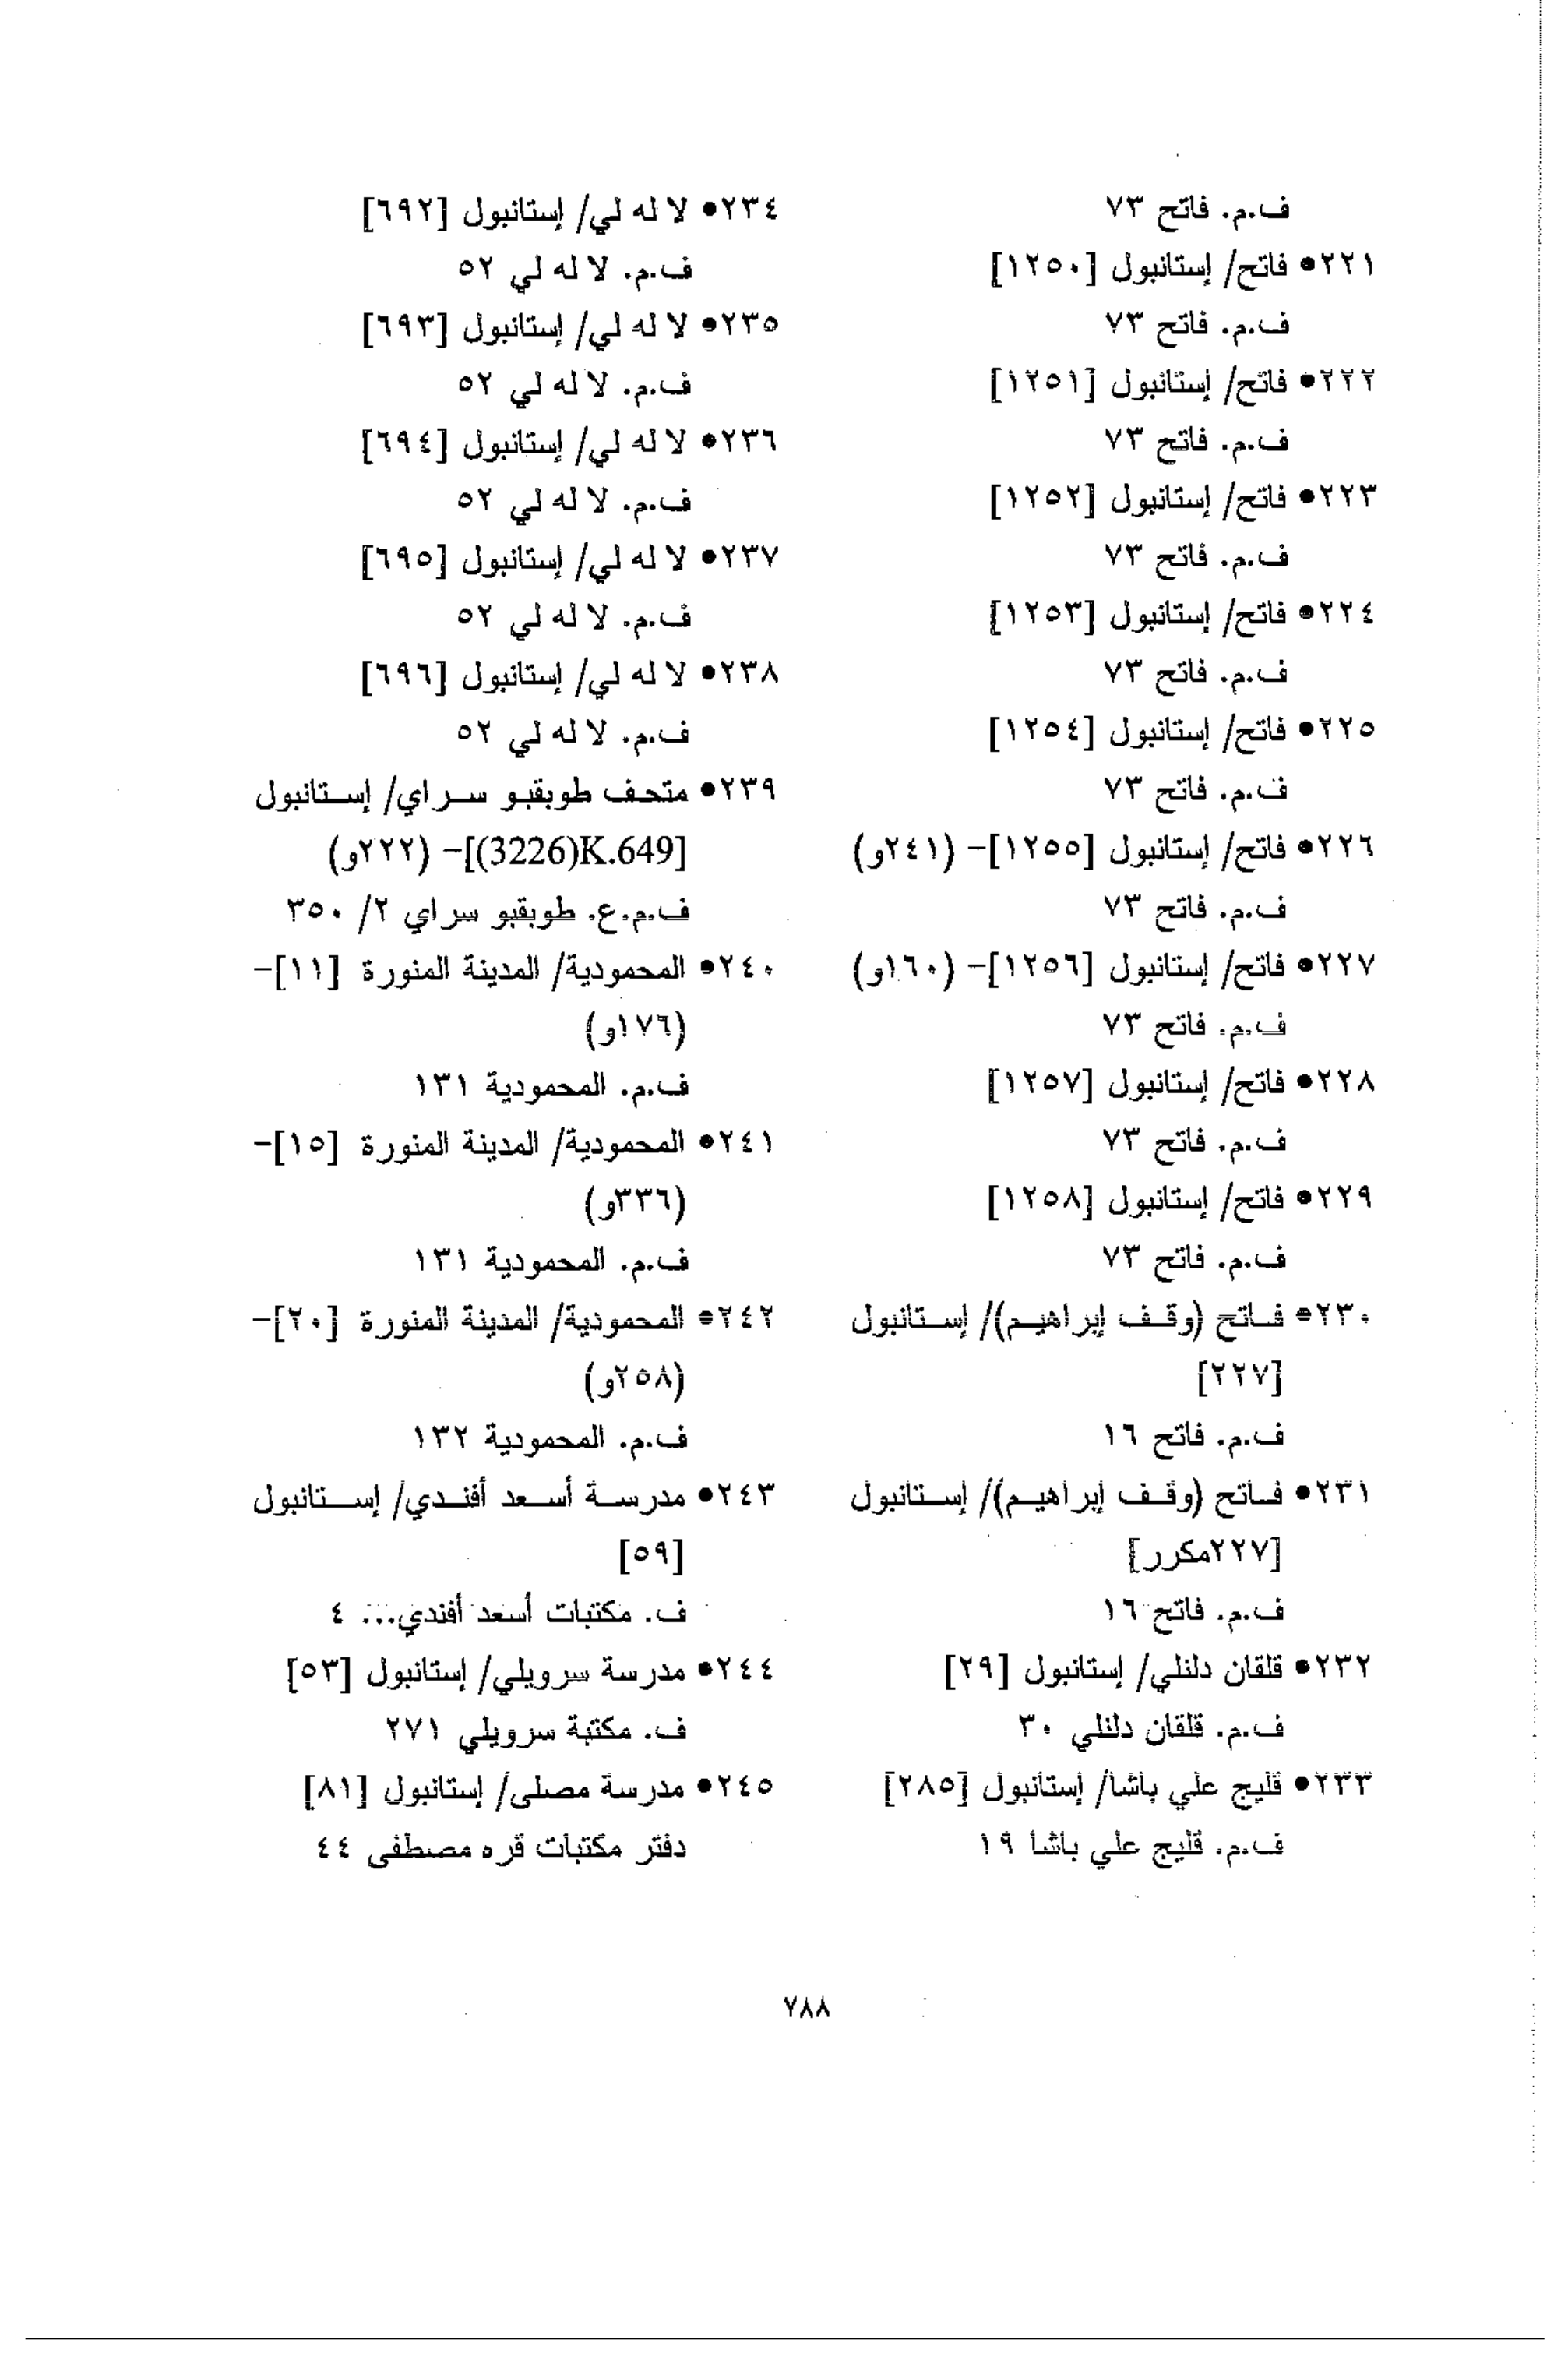 ف.م. فاتح ٧٣
٢٢١• فاتح/ إستانبول [١٢٥٠]
ف.م. فاتح ٧٣
٢٢٢• فاتح/ إستانبول [١٢٥١]
ف.م. فاتح ٧٣
٢٢٣• فاتح/ إستانبول [١٢٥٢]
ف.م. فاتح ٧٣
٢٢٤• فاتح/ إستانبول [١٢٥٣]
ف.م. فاتح ٧٣
٢٢٥• فاتح/ إستانبول [١٢٥٤]
ف.م. فاتح ٧٣
٢٢٦• فاتح/ إستانبول [١٢٥٥]- (٢٤١و)
ف.م. فاتح ٧٣
٢٢٧• فاتح/ إستانبول [١٢٥٦]- (١٦٠و)
ف.م. فاتح ٧٣
٢٢٨• فاتح/ إستانبول [١٢٥٧]
ف.م. فاتح ٧٣
٢٢٩• فاتح/ إستانبول [١٢٥٨]
ف.م. فاتح ٧٣
٢٣٠• فاتح (وقف إبراهيم)/ إستانبول
[٢٢٧]
ف.م. فاتح ١٦
٢٣١• فاتح (وقف إبراهيم)/ إستانبول
[٢٢٧مكرر]
ف.م. فاتح ١٦
٢٣٢• قلقان دلنلي/ إستانبول [٢٩]
ف.م. قلقان دلنلي ٣٠
٢٣٣• قليج علي باشا/ إستانبول [٢٨٥]
ف.م. قليج علي باشا ١٩
٢٣٤• لا له لي/ إستانبول [٦٩٢]
ف.م. لا له لي ٥٢
٢٣٥• لا له لي/ إستانبول [٦٩٣]
ف.م. لا له لي ٥٢
٢٣٦• لا له لي/ إستانبول [٦٩٤]
ف.م. لا له لي ٥٢
٢٣٧• لا له لي/ إستانبول [٦٩٥]
ف.م. لا له لي ٥٢
٢٣٨• لا له لي/ إستانبول [٦٩٦]
ف.م. لا له لي ٥٢
٢٣٩• متحف طوبقبو سراي/ إستانبول
[(3226)K.649]- (٢٢٢و)
ف.م.ع. طوبقبو سراي ٢/ ٣٥٠
٢٤٠• المحمودية/ المدينة المنورة [١١]-
(١٧٦و)
ف.م. المحمودية ١٣١
٢٤١• المحمودية/ المدينة المنورة [١٥]-
(٣٣٦و)
ف.م. المحمودية ١٣١
٢٤٢• المحمودية/ المدينة المنورة [٢٠]-
(٢٥٨و)
ف.م. المحمودية ١٣٢
٢٤٣• مدرسة أسعد أفندي/ إستانبول
[٥٩]
ف. مكتبات أسعد أفندي... ٤
٢٤٤• مدرسة سرويلي/ إستانبول [٥٣]
ف. مكتبة سرويلي ٢٧١
٢٤٥• مدرسة مصلى/ إستانبول [٨١]
دفتر مكتبات قره مصطفى ٤٤
٧٨٨